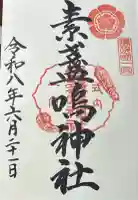 素盞嗚神社
令和八年六月二十一日